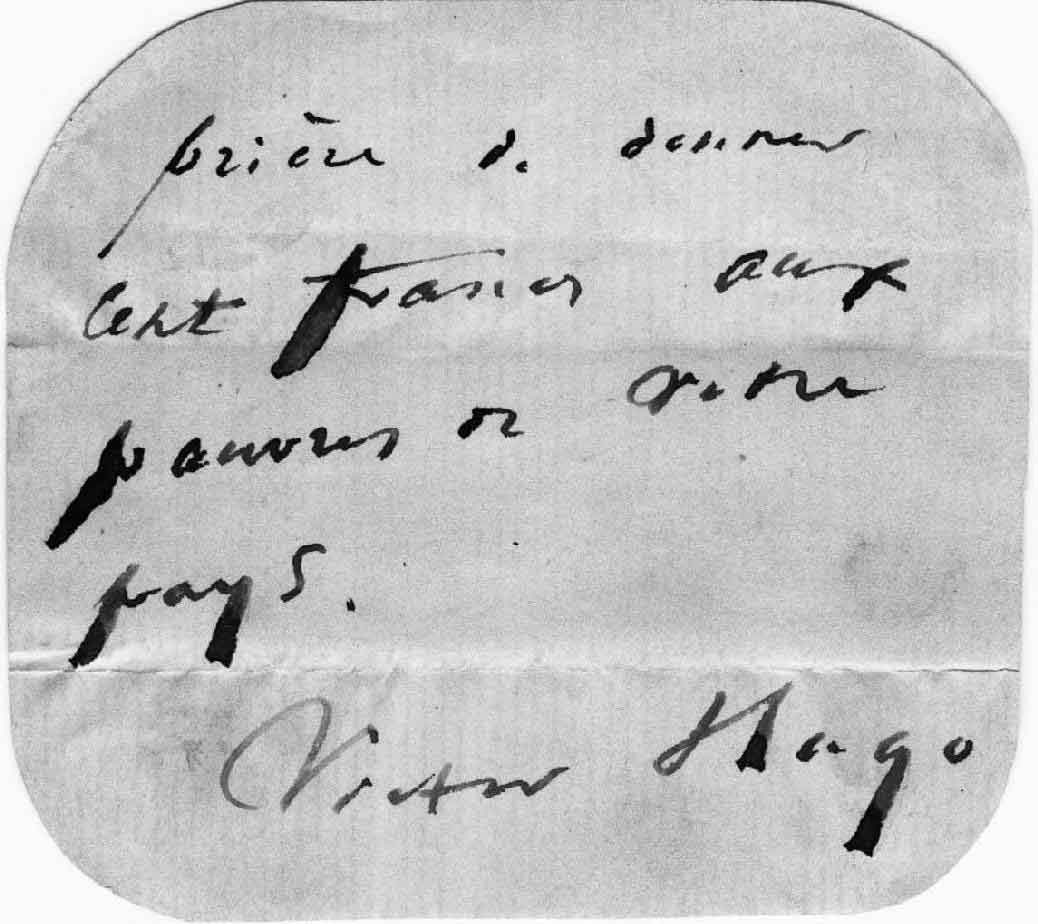 prière de donner
Cent francs aux
pauvres de votre
pays.
Victor Hugo